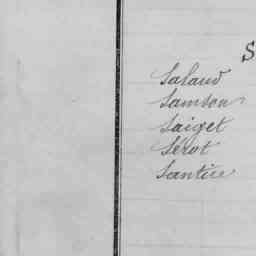 S
Salaud
Samson
Saiget
Sérot
Santice